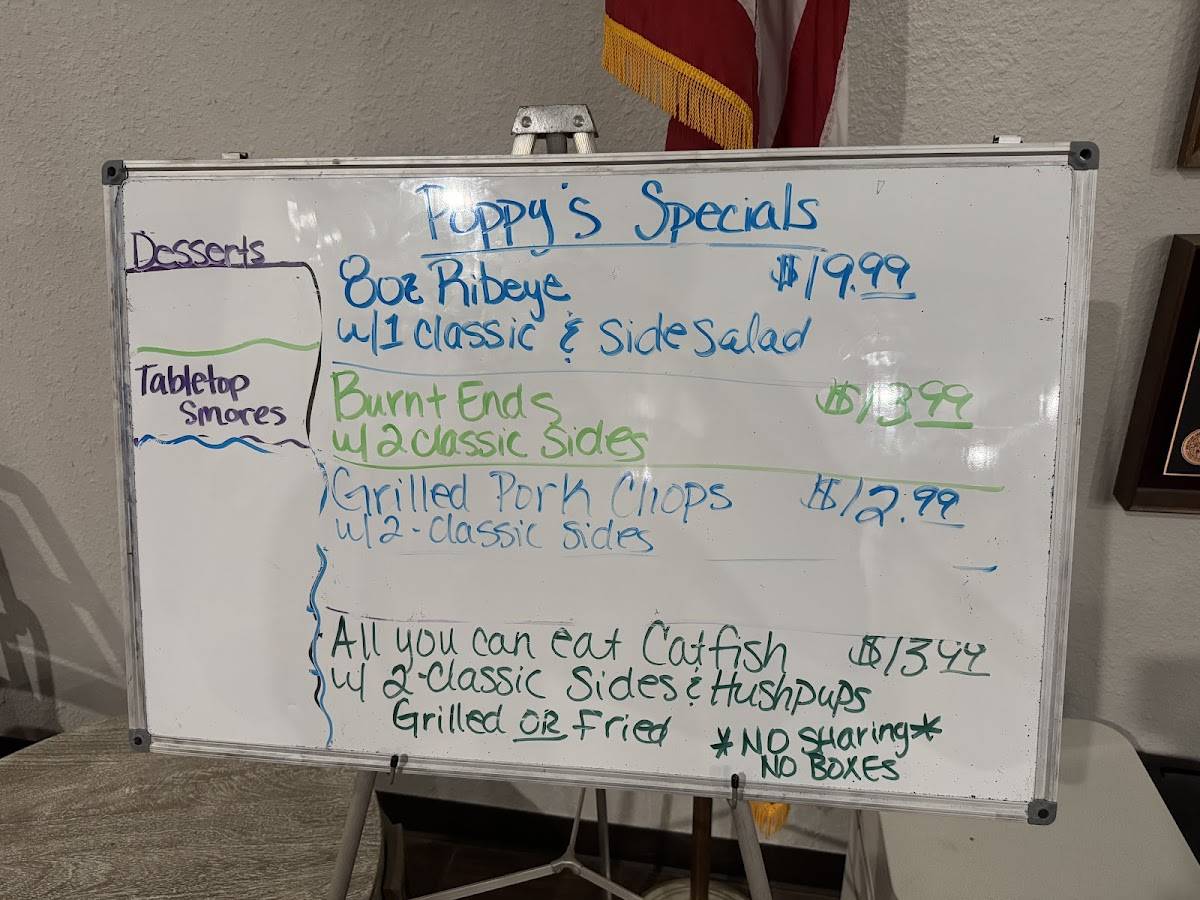 Poppy's Specials
Desserts
Tabletop
Smores
8oz Ribeye $19.99
w/1 classic & Side Salad
Burnt Ends $13.99
w/2 classic Sides
Grilled Pork Chops $12.99
w/2-Classic sides
All you can eat Catfish $13.99
w/ 2-Classic Sides & Hushpups
Grilled OR Fried
*NO SHaring*
NO BOXES